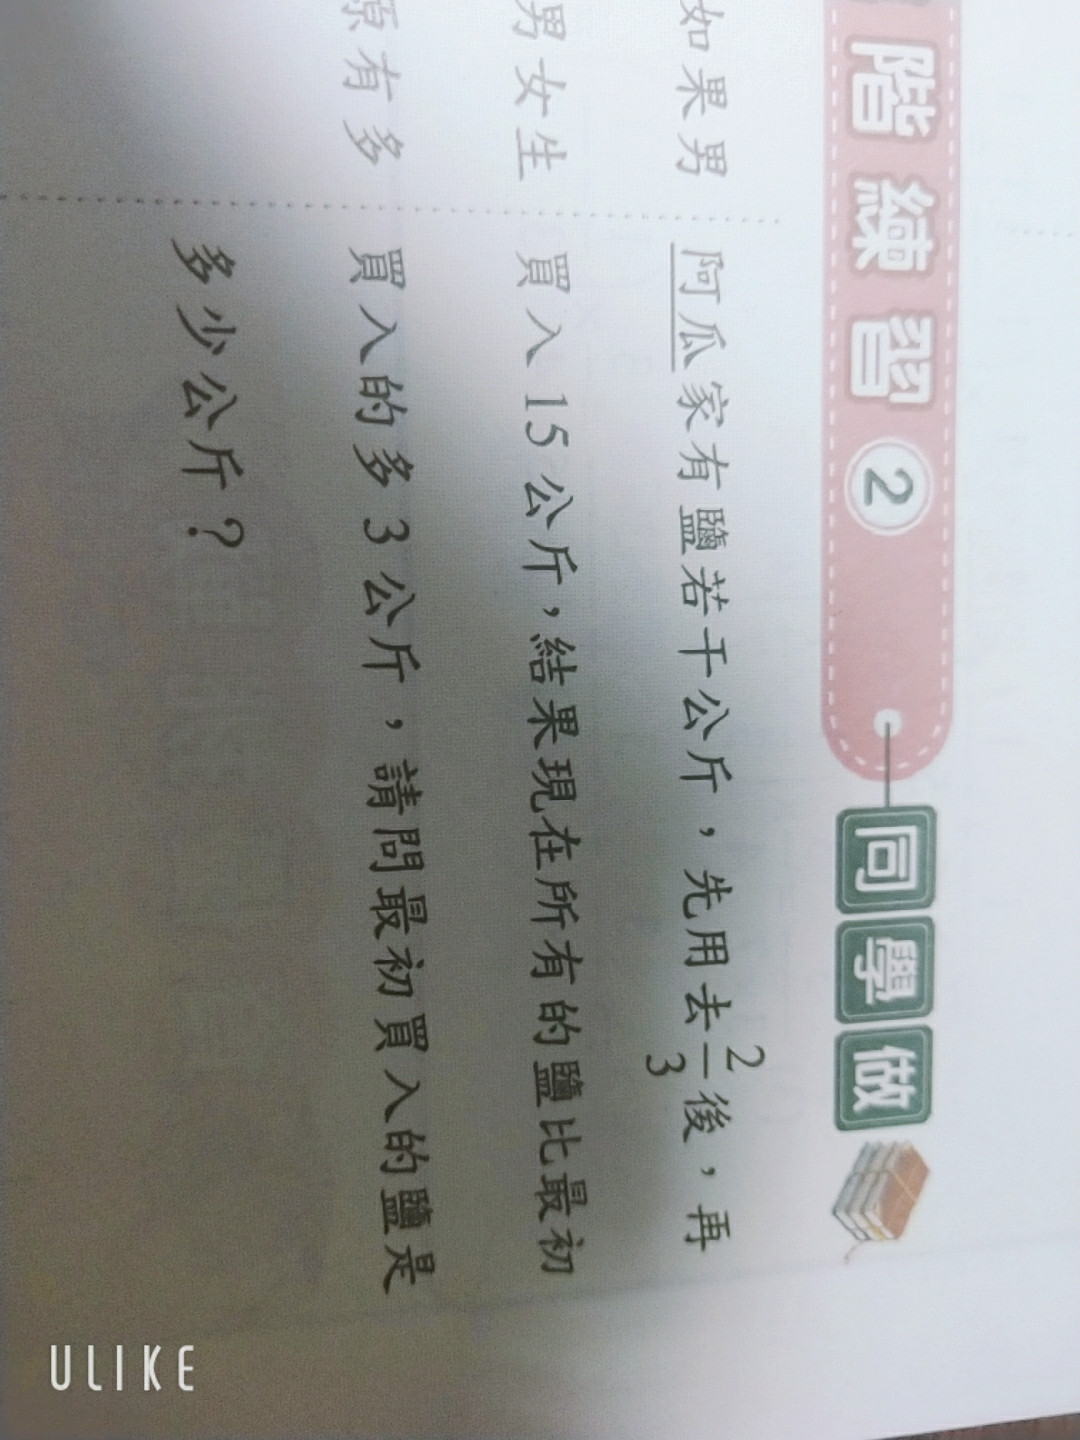 階練習2 同學做
如果男
阿瓜家有鹽若干公斤，先用去2/3後，再
男女生
買入15公斤，結果現在所有的鹽比最初
原有多
買入的多3公斤，請問最初買入的鹽是
多少公斤？
ULIKE